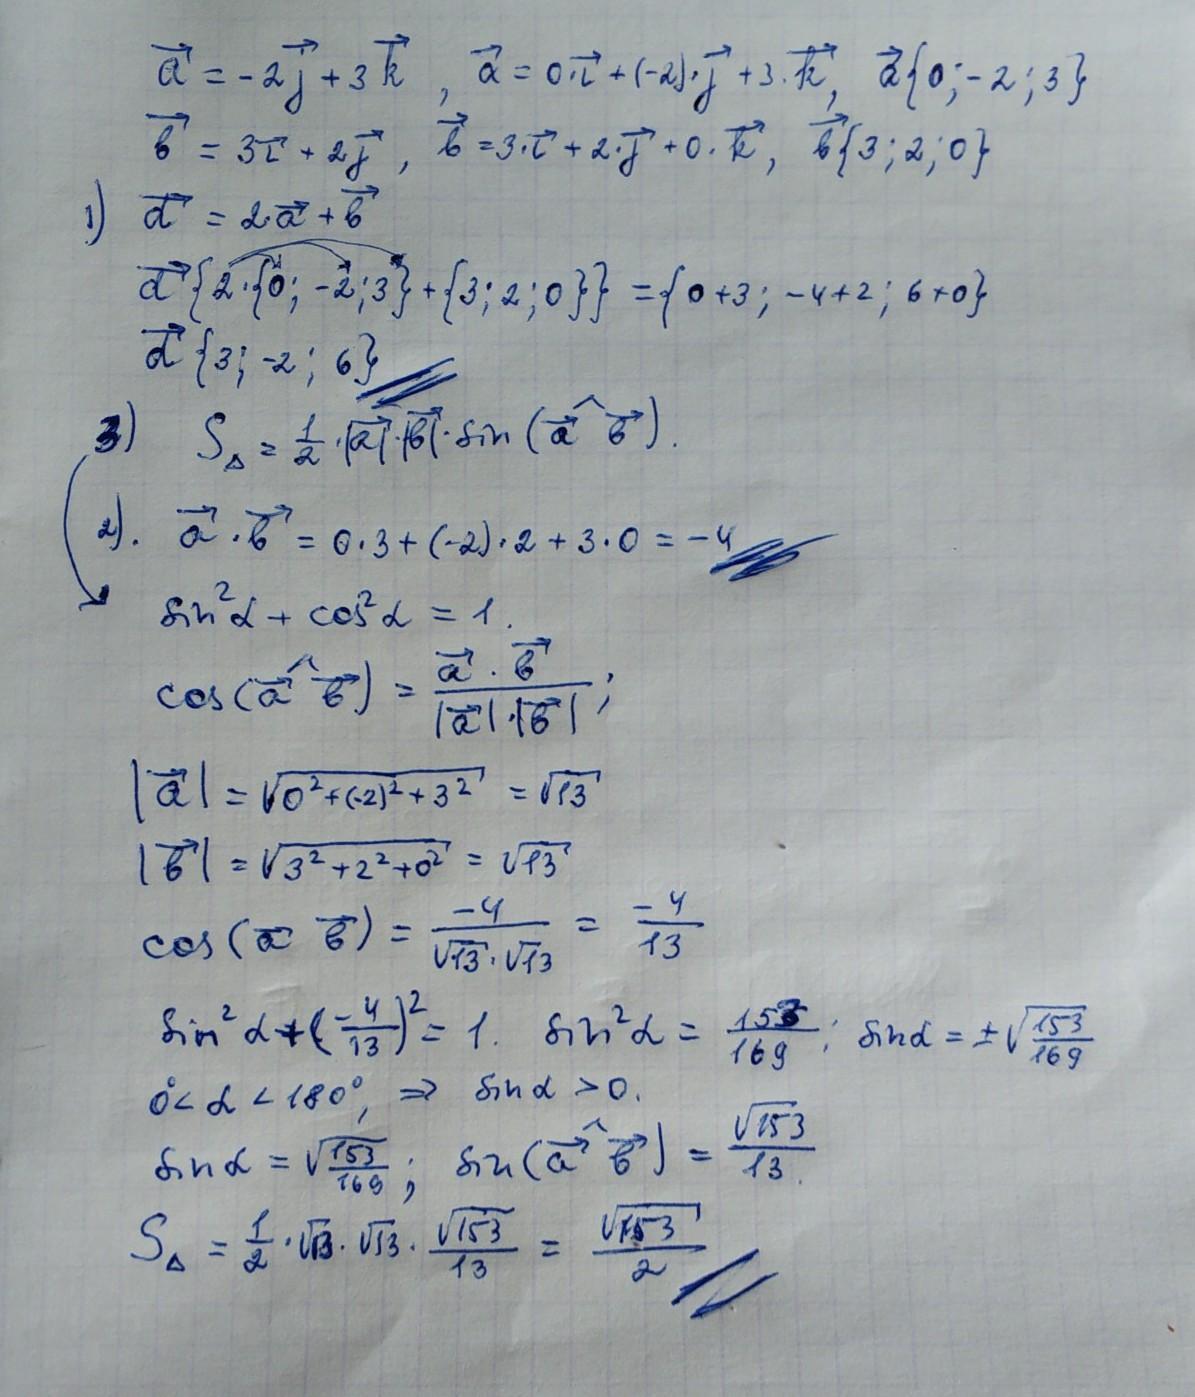 a⃗ = -2j⃗ + 3k⃗ , a⃗ = 0·i⃗ + (-2)·j⃗ + 3·k⃗, a⃗{0; -2; 3}
b⃗ = 3i⃗ + 2j⃗ , b⃗ = 3·i⃗ + 2·j⃗ + 0·k⃗, b⃗{3; 2; 0}
1) d⃗ = 2·a⃗ + b⃗
d⃗{2·{0; -2; 3} + {3; 2; 0}} = {0+3; -4+2; 6+0}
d⃗{3; -2; 6}
3) S△ = 1/2 · |a⃗|·|b⃗| · sin (a⃗ ^ b⃗).
2). a⃗ · b⃗ = 0·3 + (-2)·2 + 3·0 = -4
sin²α + cos²α = 1.
cos(a⃗ ^ b⃗) = a⃗ · b⃗ / |a⃗|·|b⃗| ;
|a⃗| = √(0² + (-2)² + 3²) = √13
|b⃗| = √(3² + 2² + 0²) = √13
cos(a⃗ b⃗) = -4 / √13·√13 = -4/13
sin²α + (-4/13)² = 1. sin²α = 153/169; sinα = ±√(153/169)
0° < α < 180°, ⇒ sinα > 0.
sinα = √(153/169); sin(a⃗ ^ b⃗) = √153/13.
S△ = 1/2 · √13 · √13 · √153/13 = √153/2